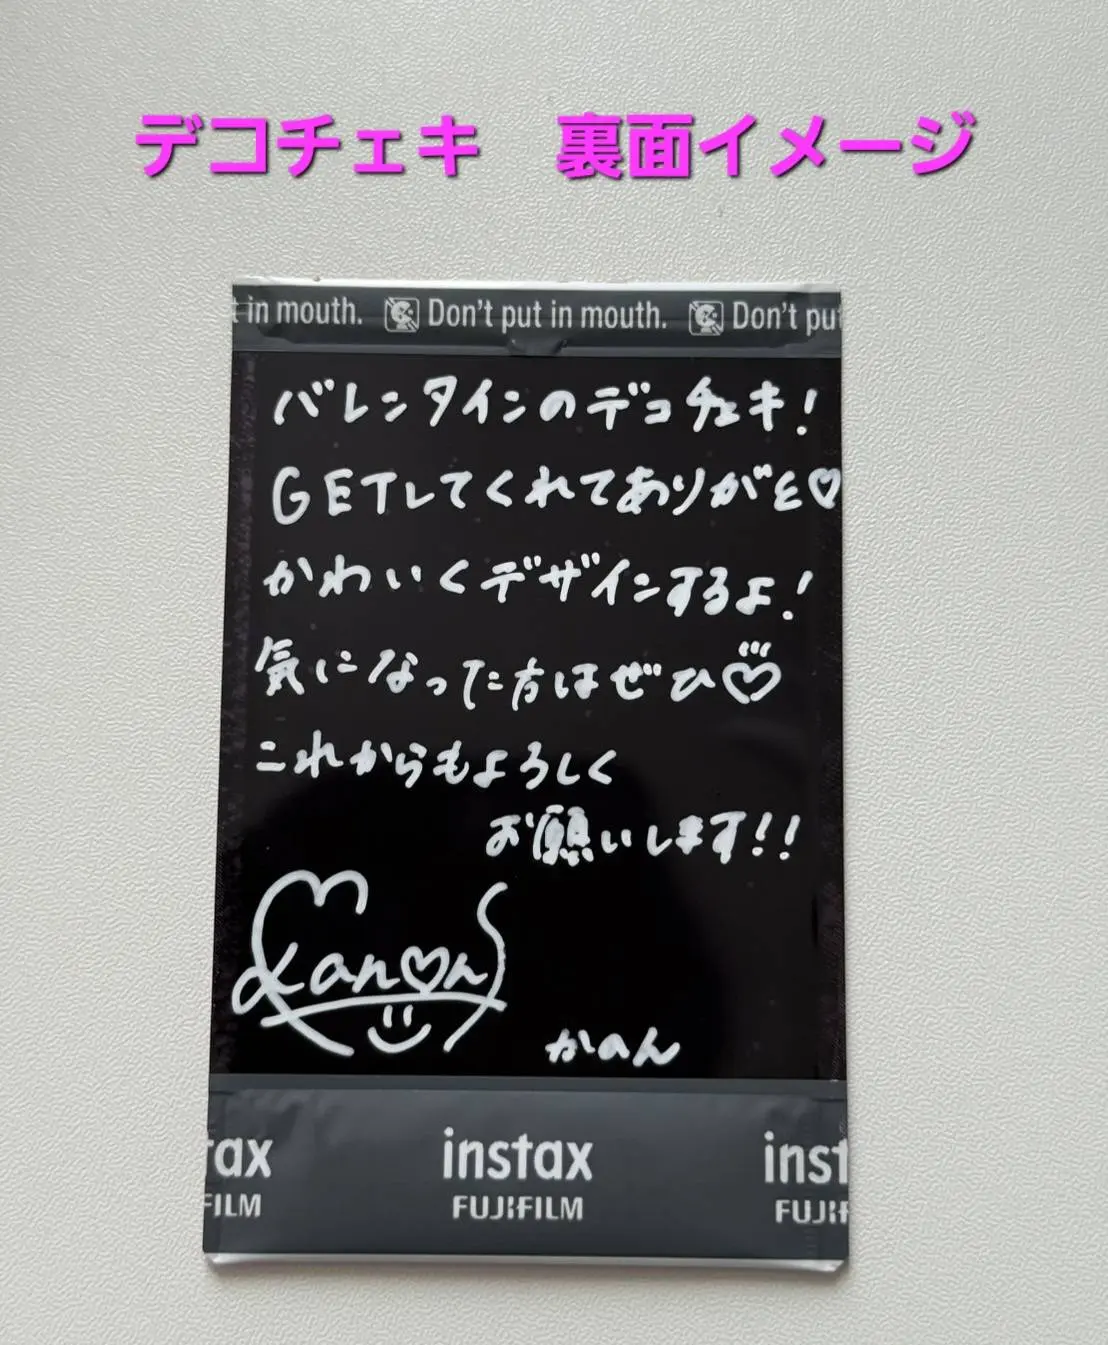 デコチェキ　裏面イメージ
t in mouth. Don't put in mouth. Don't put
バレンタインのデコチェキ!
GETしてくれてありがと♡
かわいくデザインするよ!
気になった方はぜひ♡
これからもよろしく
お願いします!!
Kan♡n
かのん
tax instax inst
FILM FUJIFILM FUJIF